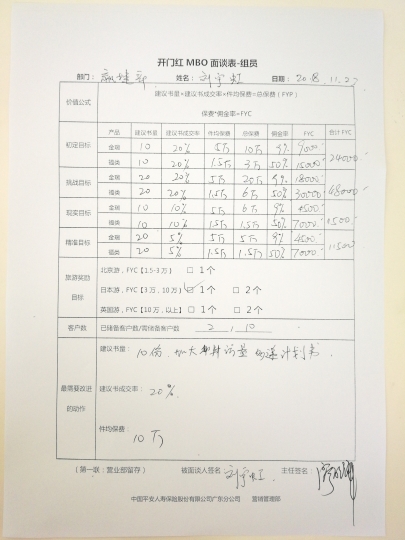 开门红 MBO 面谈表-组员
部门： 姓名：刘宇虹 日期：2018.11.27
价值公式 建议书量*建议书成交率*件均保费=总保费（FYP）
保费*佣金率=FYC
产品 建议书量 建议书成交率 件均保费 总保费 佣金率 FYC 合计 FYC
初定目标 金瑞 10 20% 5万 10万 9% 9000 24000
福类 10 20% 1.5万 3万 50% 15000
挑战目标 金瑞 20 20% 5万 20万 9% 18000 48000
福类 20 20% 1.5万 6万 50% 30000
现实目标 金瑞 10 10% 5万 9% 4500 11500
福类 10 10% 1.5万 1.5万 50% 7000
精准目标 金瑞 20 5% 5万 5万 9% 4500 11500
福类 20 5% 1.5万 1.5万 50% 7000
旅游奖励目标
北京游，FYC【1.5-3 万】 □ 1 个
日本游，FYC【3 万，10 万】 □ 1 个 □ 2 个
英国游，FYC【10 万，以上】 □ 1 个 □ 2 个
客户数 已储备客户数/需储备客户数 2 / 10
最需要改进的动作
建议书量：
10份，加大 计划书
建议书成交率：
20%
件均保费：
10万
（第一联：营业部留存） 被面谈人签名：刘宇虹 主任签名：
中国平安人寿保险股份有限公司广东分公司 营销管理部